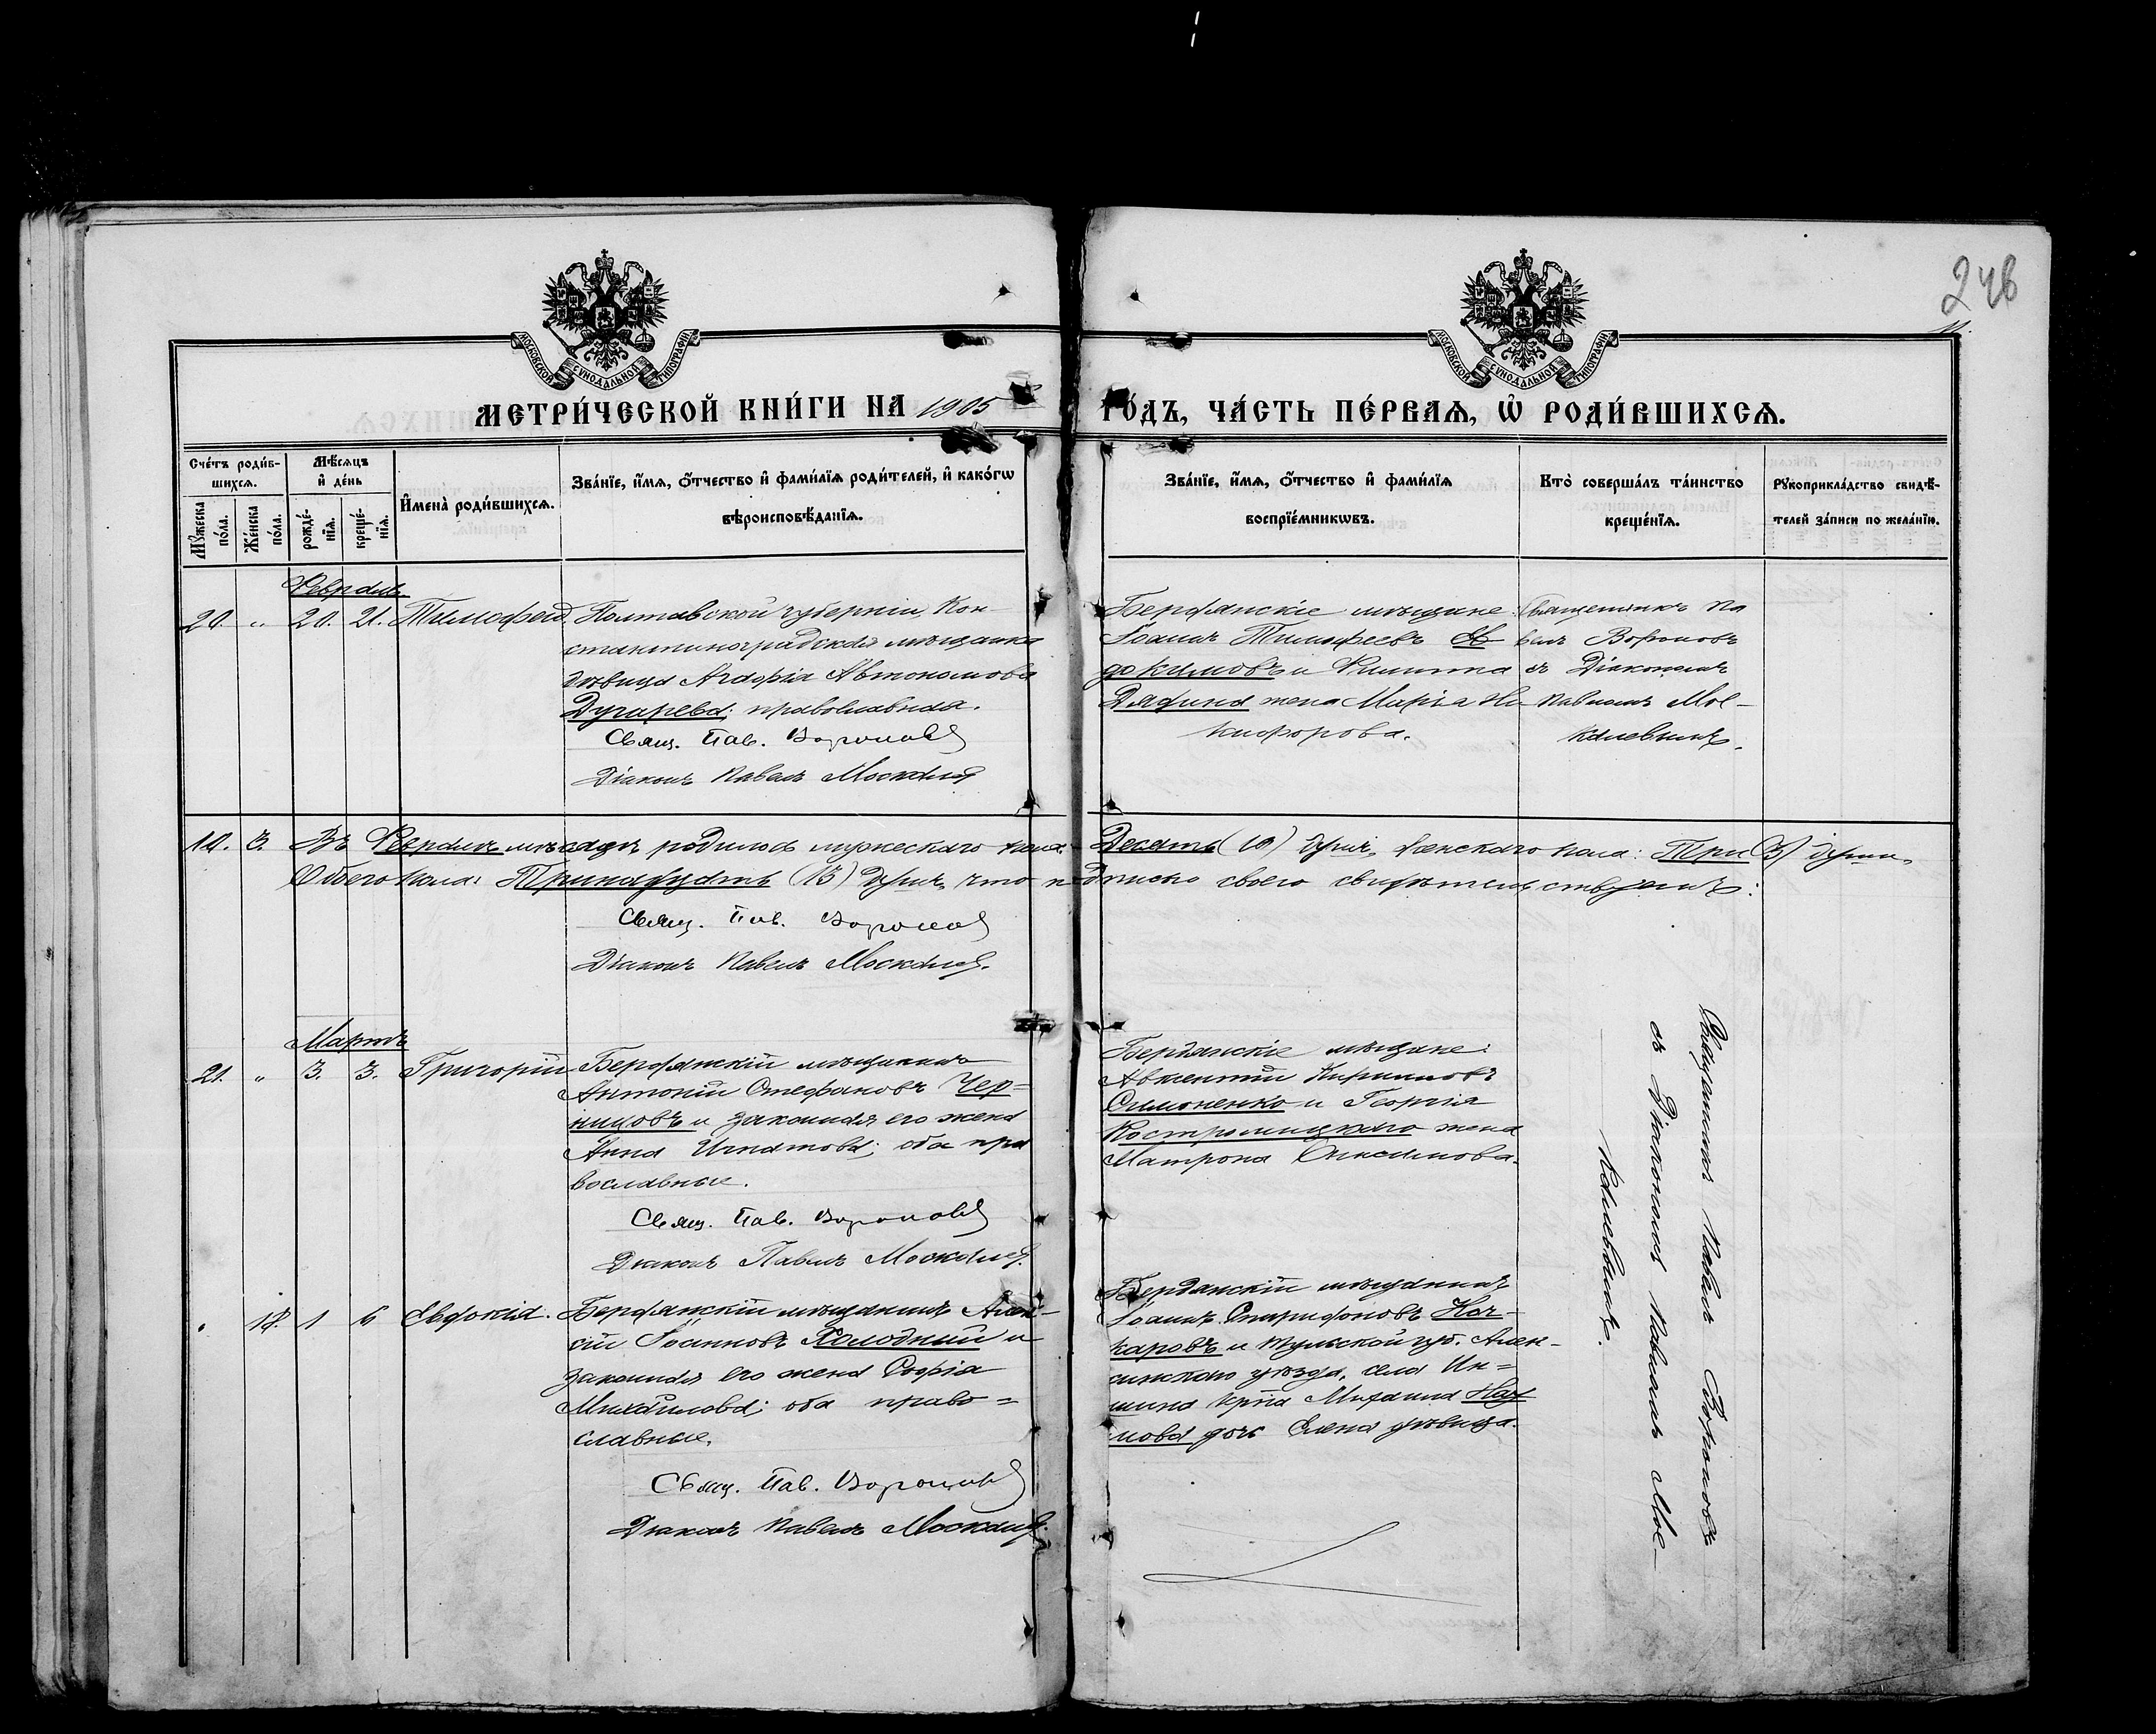 246
11.
МОСКОВСКОЙ СѴНОДАЛЬНОЙ ТИПОГРАФІИ
МОСКОВСКОЙ СѴНОДАЛЬНОЙ ТИПОГРАФІИ
МЕТРИ́ЧЕСКОЙ КНИ́ГИ НА 1905 ГО́ДЪ, ЧА́СТЬ ПЕ́РВАѦ, Ѡ҆ РОДИ́ВШИХСѦ.
Сче́тъ роди́в-
шихсѧ.
Мꙋ́жеска по́ла.
Же́нска по́ла.
Мѣ́сѧцъ и҆ де́нь
рожде́-нїѧ.
креще́-нїѧ.
И҆мена̀ роди́вшихсѧ.
Зва́нїе, и҆́мѧ, ѻ҆́тчество и҆ фами́лїѧ роди́телей, и҆ како́гѡ
вѣроисповѣ́данїѧ.
Зва́нїе, и҆́мѧ, ѻ҆́тчество и҆ фами́лїѧ
воспрїе́мникѡвъ.
Кто̀ соверша́лъ та́инство
креще́нїѧ.
Рꙋкоприкла́дство свидѣ́-
телей за́писи по жела́нїю.
Февраль
20. „ 20. 21. Тимофей
Полтавской губерніи, Кон
стантиноградская мѣщанка
дѣвица Агафія Автономова
Дугарева; православная.
Свящ. Пав. Вороновъ
Діаконъ Павелъ Москалев
Бердянскіе мѣщане:
Іоаннъ Тимофеевъ Ев
докимовъ и Филиппа
Дядина жена Марія Ни
кифорова.
Священникъ Па
велъ Вороновъ
съ Діакономъ
Павломъ Мос-
калевымъ.
10. 3. Въ Февралѣ мѣсяцѣ родилось мужескаго пола: Десять (10) душъ, женскаго пола: Три (3) души,
Обоего пола: Тринадцать (13) душъ, что подписью своею свидѣтельствуемъ:
Свящ. Пав. Воронов
Діаконъ Павелъ Москалев.
Мартъ
21. „ 3. 3. Григорій
Бердянскій мѣщанинъ
Антоній Стефановъ Чер=
нцовъ и законная его жена
Анна Игнатова; оба пра
вославные.
Свящ. Пав. Вороновъ
Діаконъ Павелъ Москалев.
Бердянскіе мѣщане:
Авксентій Кирилловъ
Симоненко и Георгія
Костромицкаго жена
Матрона
Священникъ Павелъ Вороновъ
съ Діакономъ Павломъ Мос-
калевымъ.
18. 1 6 Евдокія.
Бердянскій мѣщанинъ Алек-
сій Іоанновъ Холодный и
законная его жена Софія
Михайлова; оба право=
славные.
Свящ. Пав. Вороновъ
Діаконъ Павелъ Москалев.
Бердянскій мѣщанинъ
Іоаннъ Спиридоновъ
и Тульской губ. Алек-
синскаго уѣзда, села Ик=
шина кр-на Михаила Нау
мова дочь Елена дѣвица.